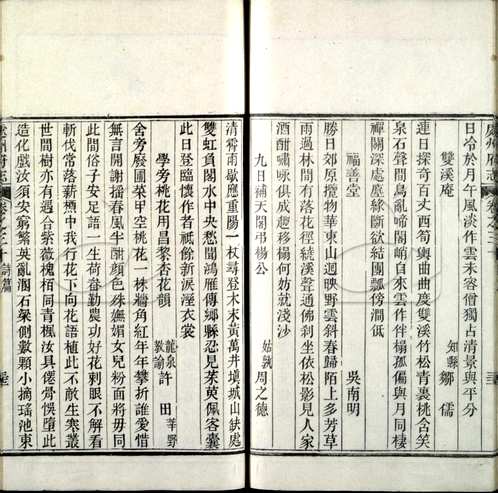 日冷於月午風淡作雲未容僧獨占清景與平分
雙溪庵
知縣 鄒儒
連日探奇百丈西筍輿曲曲度雙溪竹松青裏桃含笑
泉石聲間鳥亂啼閣峭自來雲作伴榻孤偏與月同棲
禪關深處塵緣斷欲結團瓢傍澗低
福善堂
吳南明
勝日郊原攬物華東山迤映野雲斜春歸陌上多芳草
雨過林間有落花徑繞溪聲通佛刹坐依松影見人家
酒酣嘯咏俱成趣移榻何妨就淺沙
九日補天閣弔楊公
姑孰 周之德
清霄雨歇應重陽一杖尋登木末黃萬井塡城山缺處
雙虹負閣水中央愁聞鴻雁傳鄉縣忍見茱萸佩客囊
此日登臨懷作者祗餘新淚溼衣裳
學旁桃花用昌黎杏花韻
龍泉教諭 許田 莘野
舍旁廢圃菜甲空桃花一株牆角紅年年攀折誰愛惜
無言開謝搖春風半酣顏色殊嫵媚女兒粉面將毋同
此間俗子安足語一生荷畚勤農功好花剌眼不解看
斬伐常落薪槱中我行花下向花語植此不敵生寒叢
世間樹亦有遇合紫薇槐栢同青楓汝具僊骨慎墮此
造化戲汝須安窮繁英亂溷石㮣側數顆小摘瑤池東
處州府志
卷之三十
詩篇